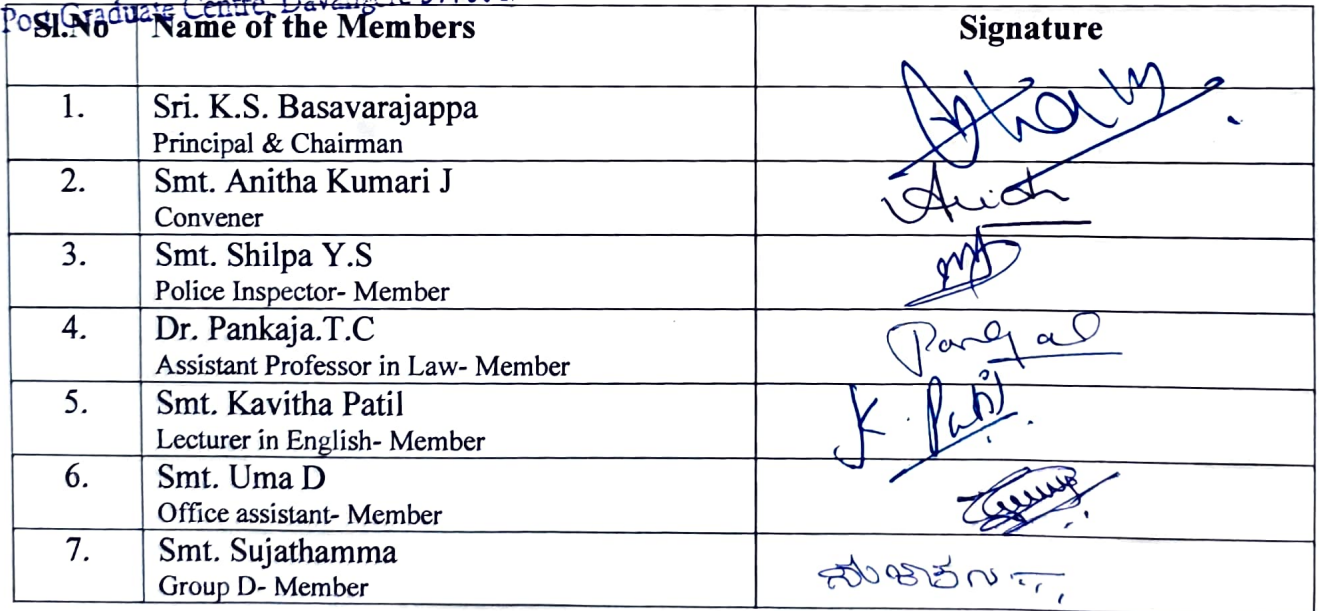 Post Graduate Centre, Davangere
Sl.No Name of the Members Signature
1. Sri. K.S. Basavarajappa
Principal & Chairman
2. Smt. Anitha Kumari J
Convener
3. Smt. Shilpa Y.S
Police Inspector- Member
4. Dr. Pankaja.T.C
Assistant Professor in Law- Member
5. Smt. Kavitha Patil K. Patil
Lecturer in English- Member
6. Smt. Uma D
Office assistant- Member
7. Smt. Sujathamma
Group D- Member